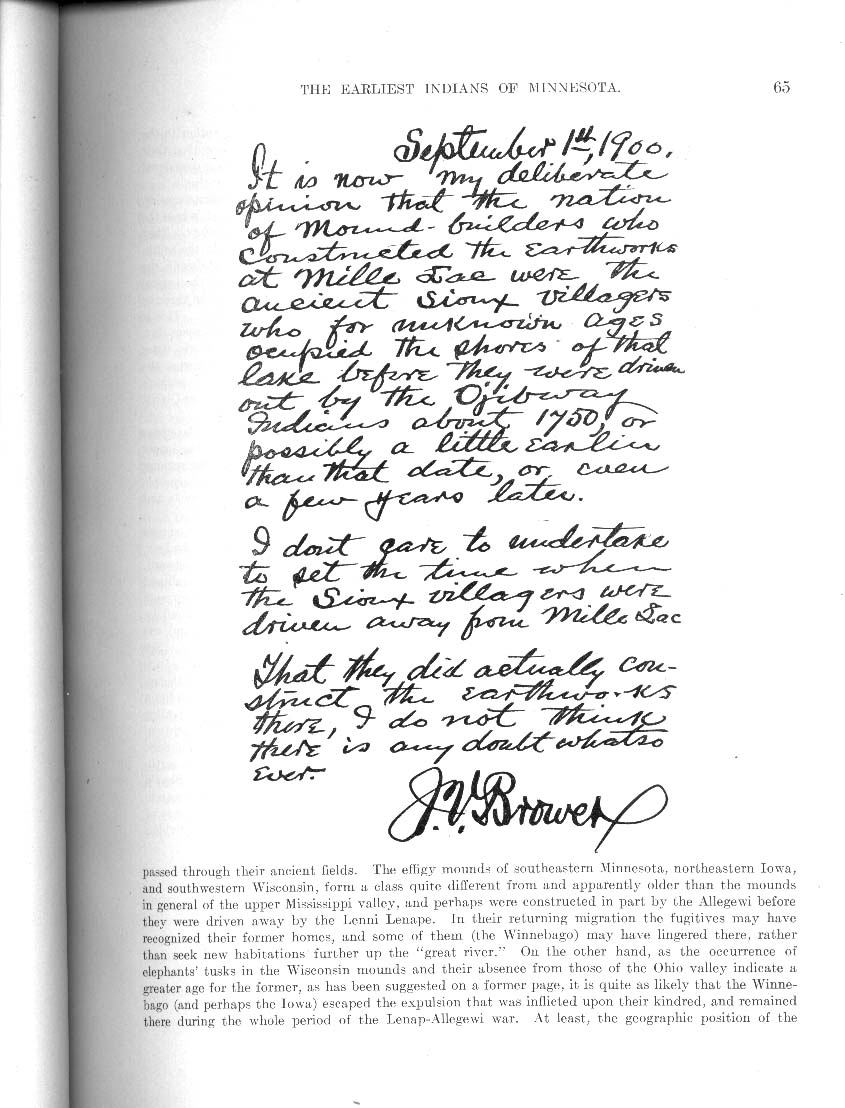 THE EARLIEST INDIANS OF MINNESOTA. 65
September 1st, 1900.
It is now my deliberate
opinion that the nation
of Mound-builders who
constructed the Earthworks
at Mille Lac were the
ancient Sioux villagers
who for unknown ages
ocupied the shores of that
lake before they were driven
out by the Ojibway
Indians about 1750, or
possibly a little earlier
than that date, or even
a few years later.
I dont care to undertake
to set the time when
the Sioux villagers were
driven away from Mille Lac
That they did actually con-
struct the earthworks
there, I do not think
there is any doubt whatso
ever.
J. V. Brower
passed through their ancient fields. The effigy mounds of southeastern Minnesota, northeastern Iowa,
and southwestern Wisconsin, form a class quite different from and apparently older than the mounds
in general of the upper Mississippi valley, and perhaps were constructed in part by the Allegewi before
they were driven away by the Lenni Lenape. In their returning migration the fugitives may have
recognized their former homes, and some of them (the Winnebago) may have lingered there, rather
than seek new habitations further up the “great river.” On the other hand, as the occurrence of
elephants' tusks in the Wisconsin mounds and their absence from those of the Ohio valley indicate a
greater age for the former, as has been suggested on a former page, it is quite as likely that the Winne-
bago (and perhaps the Iowa) escaped the expulsion that was inflicted upon their kindred, and remained
there during the whole period of the Lenap-Allegewi war. At least, the geographic position of the